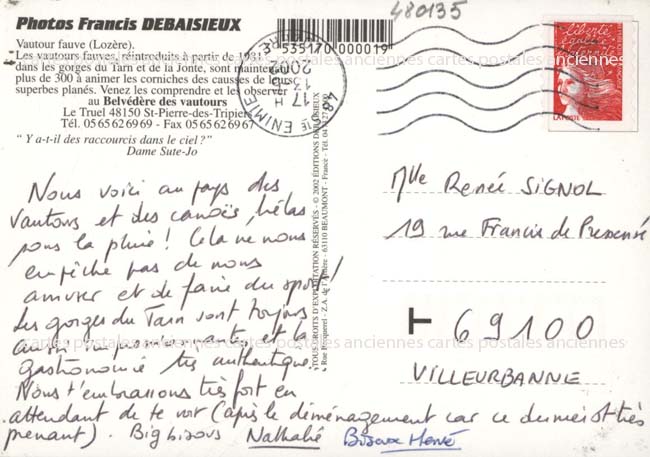 480135
Photos Francis DEBAISIEUX
Vautour fauve (Lozère).
Les vautours fauves, réintroduits à partir de 1981
dans les gorges du Tarn et de la Jonte, sont maintenant
plus de 300 à animer les corniches des causses de leurs
superbes planés. Venez les comprendre et les observer
au Belvédère des vautours
Le Truel 48150 St-Pierre-des-Tripiers
Tél. 05 65 62 69 69 - Fax 05 65 62 69 67
" Y a-t-il des raccourcis dans le ciel ? "
Dame Sute-Jo
3 535170 000019
48 STE ENIMIE
17 H
13
2002
LOZERE
liberté
égalité
fraternité
LA POSTE
TOUS DROITS D'EXPLOITATION RÉSERVÉS - © 2002 ÉDITIONS DEBAISIEUX
63110 BEAUMONT - France - Tél. 04
Nous voici au pays des
vautours et des canoës, hélas
sous la pluie ! Cela ne nous
empêche pas de nous
amuser et de faire du sport !
Les gorges du Tarn sont toujours
aussi impressionnantes et la
gastronomie très authentique.
Nous t'embrassons très fort en
attendant de te voir (après le déménagement car ce dernier est très
prenant). Big bisous Nathalie Bisous Hervé
Mlle Renée SIGNOL
19 rue Francis de Pressensé
69100
VILLEURBANNE
cartes postales anciennes